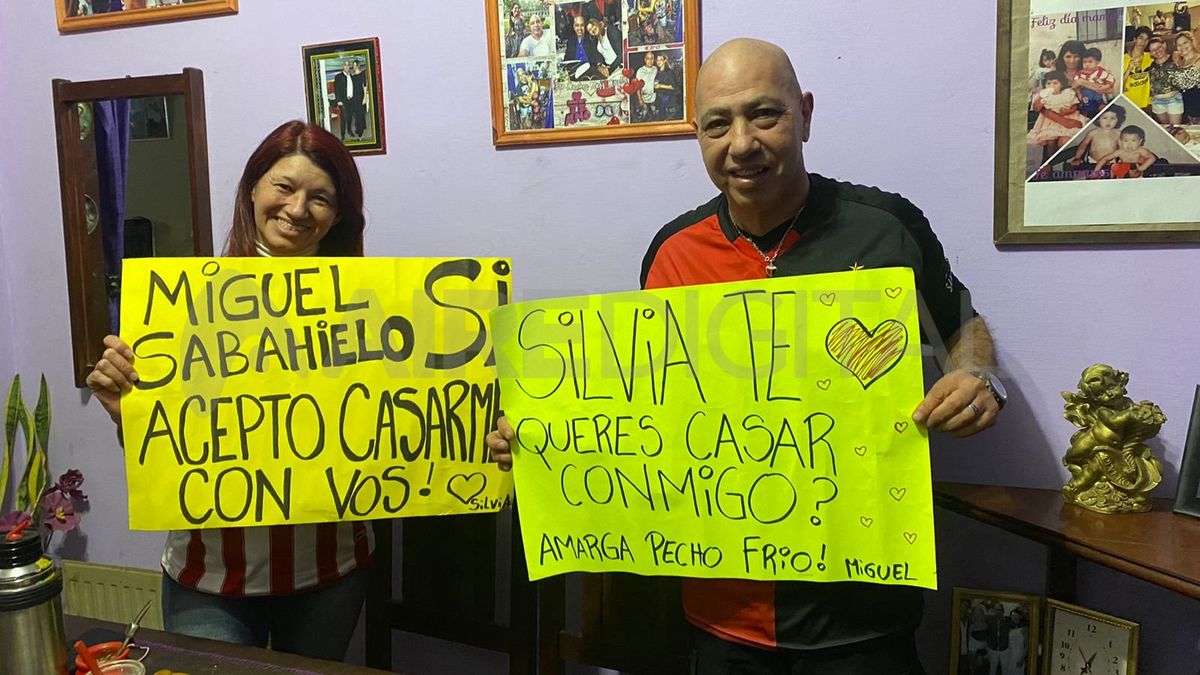 Feliz día mamá
MiGUEL
SABAHiELO Si
ACEPTO CASARME
CON VOS!
SiLViA
AIREDIGITAL
SiLViA TE
QUERES CASAR
CONMiGO?
AMARGA PECHO FRiO! MiGUEL
Te amamos